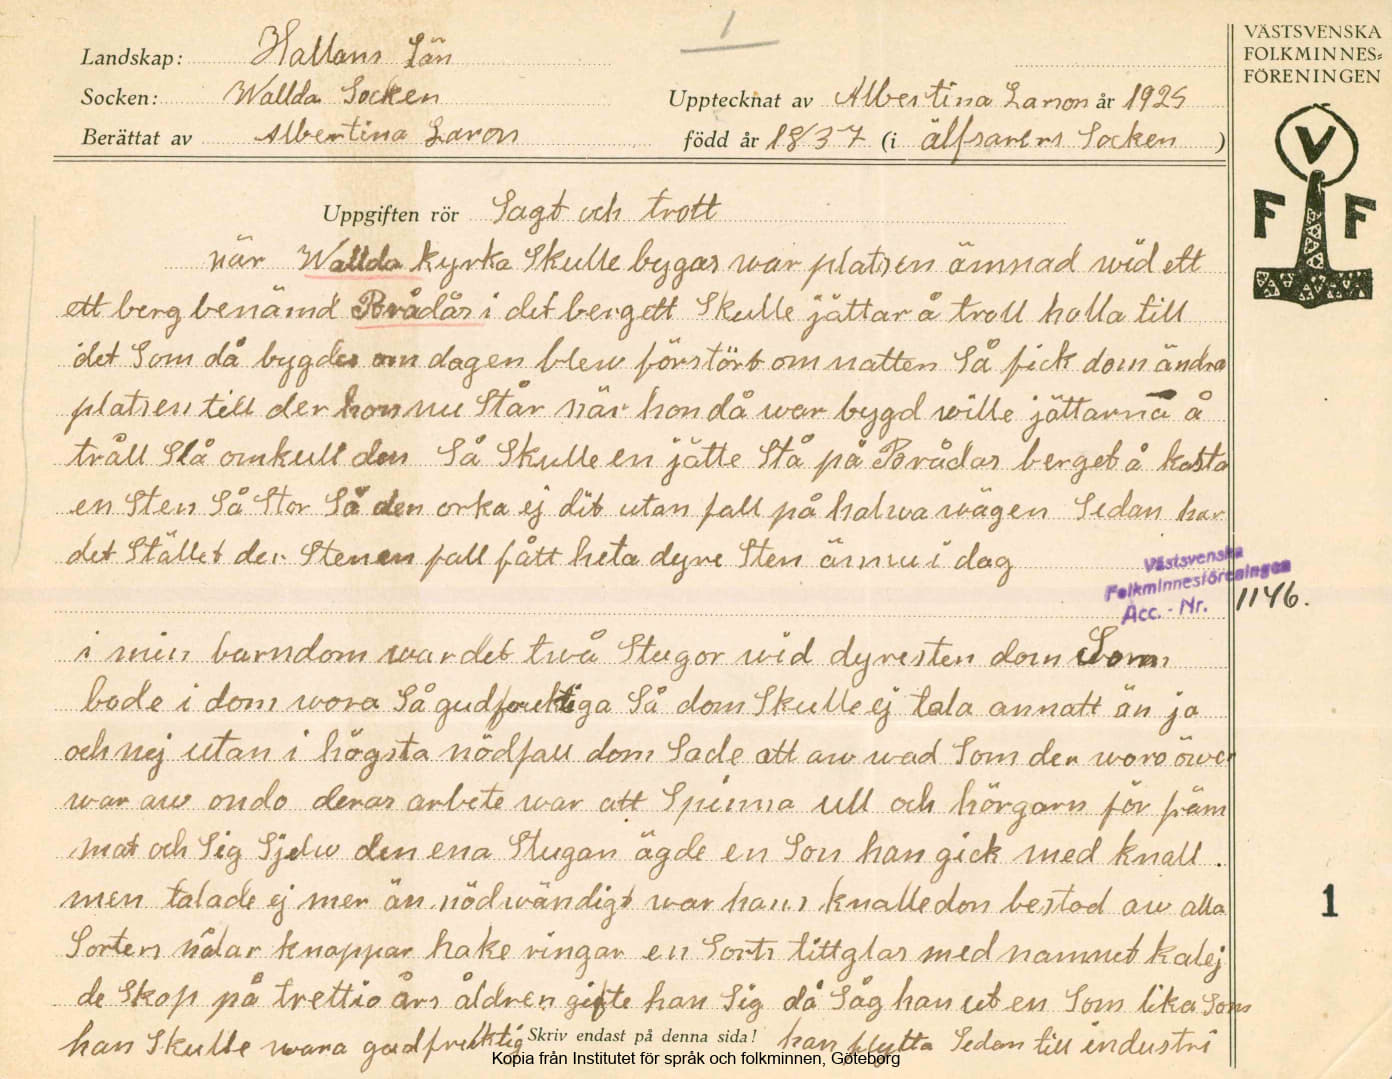 1
VÄSTSVENSKA
FOLKMINNES=
FÖRENINGEN
V
F F
Landskap: Hallans Län
Socken: Wallda Socken
Upptecknat av Albertina Larson år 1925
Berättat av Albertina Larson
född år 1837 (i älfsarers Socken )
Uppgiften rör Sagt och trott
när Wallda kyrka Skulle bygas war platsen ämnad wid ett
ett berg benämd Brådås i det berg ett Skulle jättar å troll holla till
idet Som då bygdes om dagen blew förstört om natten Så fick dom ändra
platsen till der hon nu Står när hon då war bygd wille jättarna å
tråll Slå omkull den Så Skulle en jätte Stå på Brådas berget å kasta
en Sten Så Stor Så den orka ej dit utan fall på halwa wägen Sedan har
det Stället der Stenen fall fått heta dyre Sten ännu i dag
Västsvenska
Folkminnesföreningen
Acc. - Nr. 1146.
i min barndom war det twå Stugor wid dyresten dom Som
bode i dom wora Så gudfruktiga Så dom Skulle ej tala annatt än ja
och nej utan i högsta nödfall dom Sade att aw wad Som der woro öwer
war aw ondo deras arbete war att Spinna ull och hörgarn för främ
mat och Sig Sjelw den ena Stugan ägde en Son han gick med knall.
men talade ej mer än nödwändigt war hans knalledon bestod aw alla
Sorters nålar knappar hake ringar en Sorts tittglas med namnet kalej
1
de Skop på trettio års åldren gifte han Sig då Såg han ut en Som lika Som
han Skulle wara gudfruktig Skriv endast på denna sida! han flytta Sedan till industri
Kopia från Institutet för språk och folkminnen, Göteborg